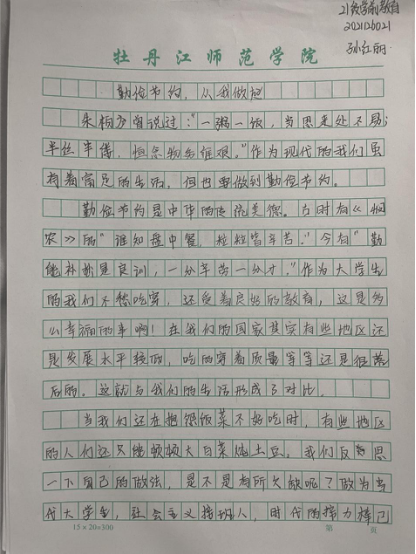 21级学前教育
202126021
孙红丽
牡丹江师范学院
勤俭节约，从我做起
朱柏庐曾说过："一粥一饭，当思来处不易；
半丝半缕，恒念物力维艰。"作为现代的我们虽
拥着富足的生活，但也要做到勤俭节约。
勤俭节约是中华的传统美德。古时有《悯
农》的"谁知盘中餐，粒粒皆辛苦。"今有"勤
能补拙是良训，一分辛苦一分才。"作为大学生
的我们不愁吃穿，还受着良好的教育，这是多
么幸福的事啊！在我们的国家其实有些地区还
是发展水平较低，吃的穿着质量等等还是很落
后的。这就与我们的生活形成了对比。
当我们还在抱怨饭菜不好吃时，有些地区
的人们还只能顿顿大白菜炖土豆。我们反思
一下自己的做法，是不是有所欠缺呢？做为当
代大学生，社会主义接班人，时代的接力棒已
15×20=300
第 页